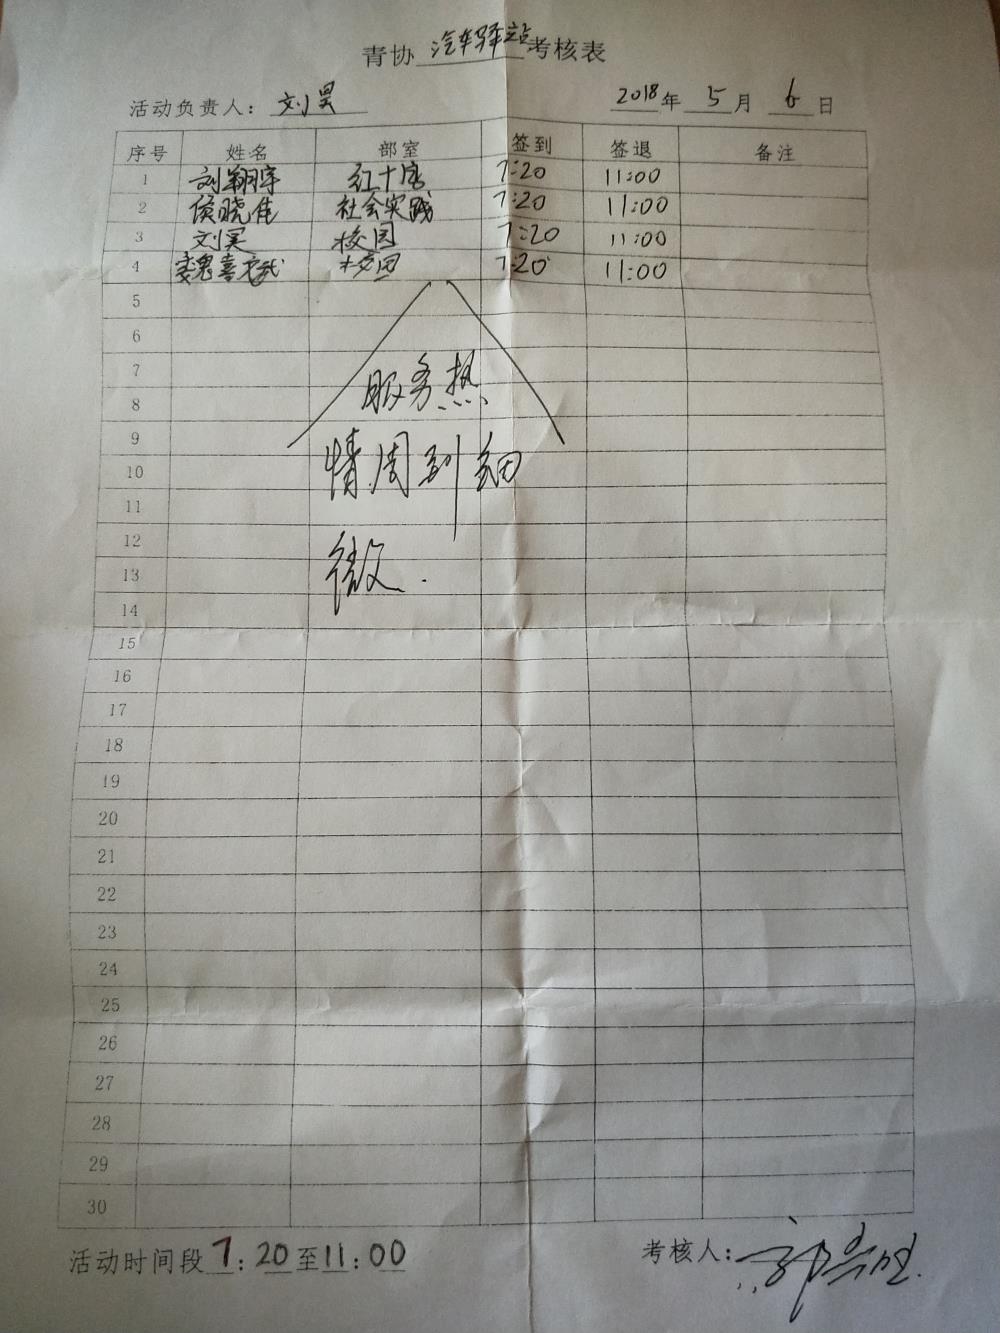 青协 汽车驿站 考核表
活动负责人: 刘昊 2018年 5月 6日
序号 姓名 部室 签到 签退 备注
1 刘翔宇 红十字 7:20 11:00
2 侯晓佳 社会实践 7:20 11:00
3 刘昊 校园 7:20 11:00
4 魏喜 校园 7:20 11:00
5
6
7
8
9
10
11
12
13
14
15
16
17
18
19
20
21
22
23
24
25
26
27
28
29
30
服务热
情周到细
微.
活动时间段 7:20至11:00 考核人: